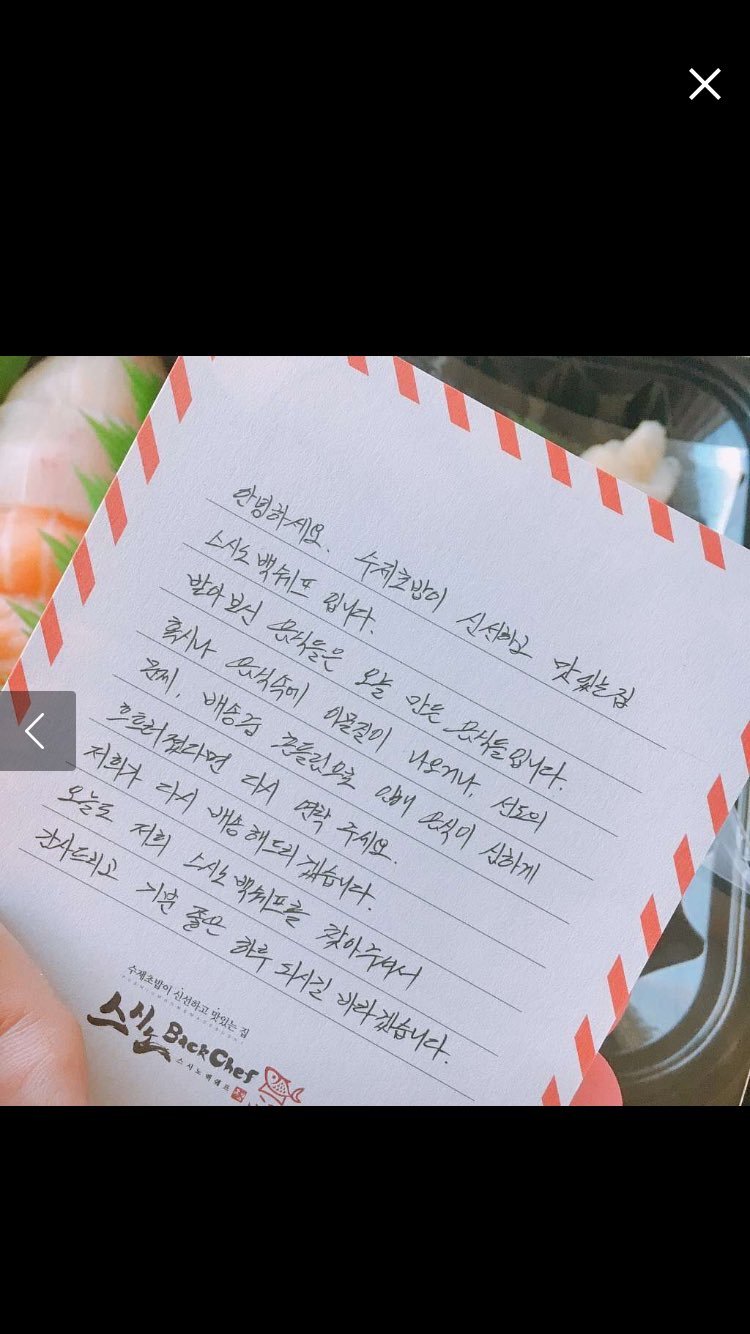 안녕하세요. 수제초밥이 신선하고 맛있는집
스시노백쉐프 입니다.
받아보신 음식들은 오늘 만든 음식들입니다.
혹시나 음식속에 이물질이 나오거나, 선도의
문제, 배송중 흔들림으로 인해 음식이 심하게
흐트러졌다면 다시 연락 주세요.
저희가 다시 배송해드리겠습니다.
오늘도 저희 스시노백쉐프를 찾아주셔서
감사드리고 기분 좋은 하루 되시길 바라겠습니다.
수제초밥이 신선하고 맛있는 집
스시노 BackChef
스시노백쉐프